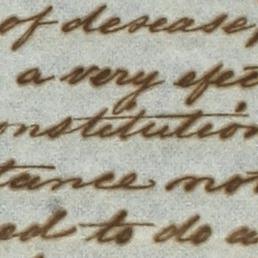 of desease,
a very efect
onstitution
tance not
ed to do a